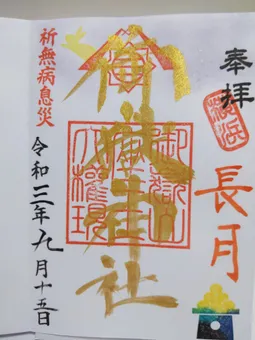 奉拝
横浜
長月
御嶽神社
御嶽山
大權現
祈無病息災
令和三年九月十五日